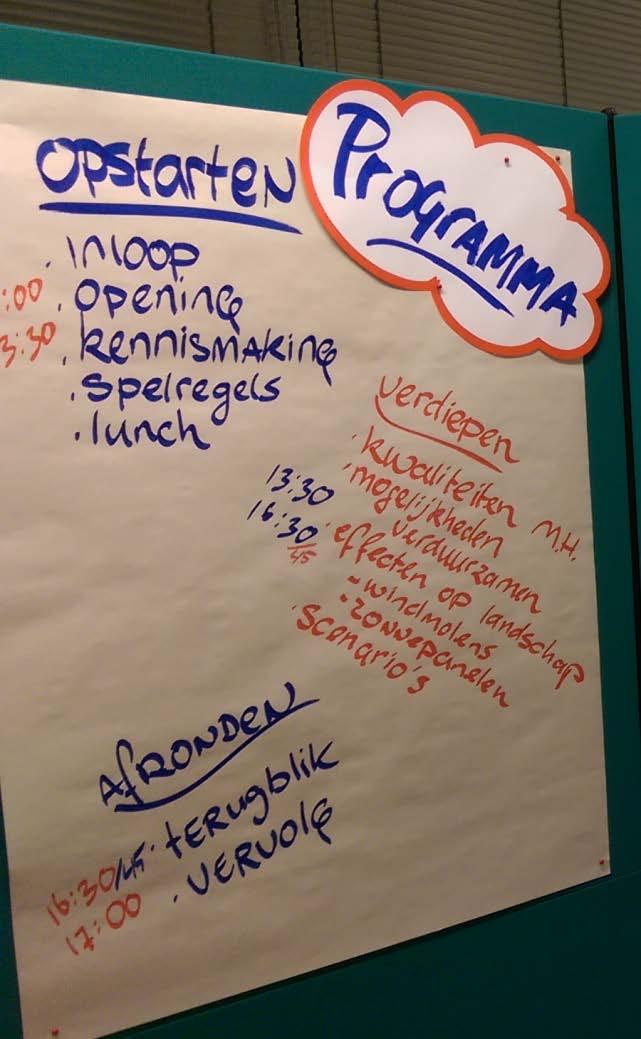 Programma
Opstarten
. inloop
:00 . opening
3:30 . kennismaking
. spelregels
. lunch
verdiepen
. kwaliteiten M.H.
13:30 . mogelijkheden
verduurzamen
16:30 . effecten op landschap
45
- windmolens
- zonnepanelen
. scenario's
Afronden
16:30/45 . terugblik
17:00 . vervolg